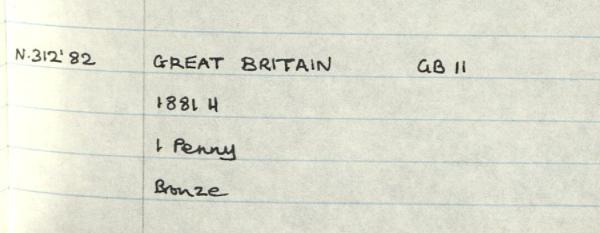 N.312'82 GREAT BRITAIN GB 11
1881 H
1 Penny
Bronze